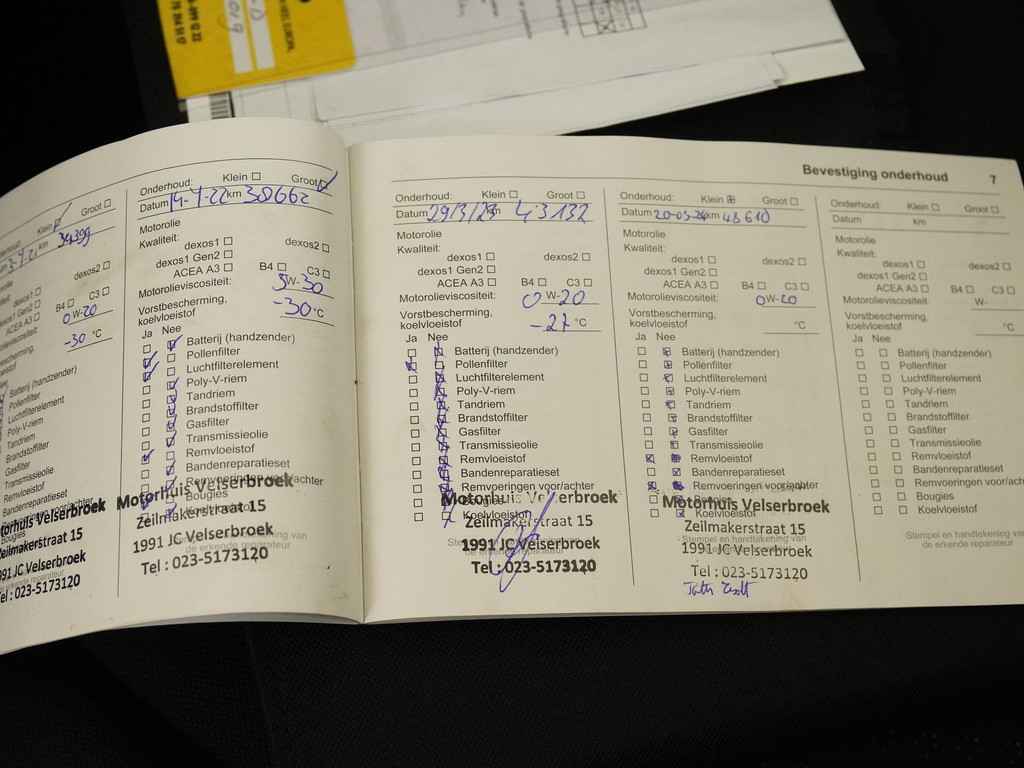 Bevestiging onderhoud 7
Klein Groot
34399
dexos2
B4 C3
0W-20
-30 °C
Pollenfilter
Luchtfilterelement
Poly-V-riem
Tandriem
Brandstoffilter
Gasfilter
Transmissieolie
Remvloeistof
Bandenreparatieset
Bougies
Zeilmakerstraat 15
1991 JC Velserbroek
Tel : 023-5173120
Onderhoud: Klein Groot
Datum 14-7-22 km 38662
Motorolie
Kwaliteit:
dexos1 dexos2
dexos1 Gen2
ACEA A3 B4 C3
Motorolieviscositeit: 5W-30
Vorstbescherming,
koelvloeistof -30 °C
Ja Nee
Batterij (handzender)
Pollenfilter
Luchtfilterelement
Poly-V-riem
Tandriem
Brandstoffilter
Gasfilter
Transmissieolie
Remvloeistof
Bandenreparatieset
Remvoeringen voor/achter
Bougies
Koelvloeistof
Motorhuis Velserbroek
Zeilmakerstraat 15
1991 JC Velserbroek
de erkende reparateur
Tel : 023-5173120
Onderhoud: Klein Groot
Datum: 29/3/23 km 43132
Motorolie
Kwaliteit:
dexos1 dexos2
dexos1 Gen2
ACEA A3 B4 C3
Motorolieviscositeit: 0W-20
Vorstbescherming,
koelvloeistof -27 °C
Ja Nee
Batterij (handzender)
Pollenfilter
Luchtfilterelement
Poly-V-riem
Tandriem
Brandstoffilter
Gasfilter
Transmissieolie
Remvloeistof
Bandenreparatieset
Remvoeringen voor/achter
Koelvloeistof
Motorhuis Velserbroek
Zeilmakerstraat 15
1991 JC Velserbroek
Tel : 023-5173120
Onderhoud: Klein Groot
Datum 20-03-24 km 48610
Motorolie
Kwaliteit:
dexos1 dexos2
dexos1 Gen2
ACEA A3 B4 C3
Motorolieviscositeit: 0W-20
Vorstbescherming,
koelvloeistof °C
Ja Nee
Batterij (handzender)
Pollenfilter
Luchtfilterelement
Poly-V-riem
Tandriem
Brandstoffilter
Gasfilter
Transmissieolie
Remvloeistof
Bandenreparatieset
Remvoeringen voor/achter
Bougies
Koelvloeistof
Motorhuis Velserbroek
Zeilmakerstraat 15
Stempel en handtekening van
1991 JC Velserbroek
Tel : 023-5173120
Onderhoud: Klein Groot
Datum km
Motorolie
Kwaliteit:
dexos1 dexos2
dexos1 Gen2
ACEA A3 B4 C3
Motorolieviscositeit: W-
Vorstbescherming,
koelvloeistof °C
Ja Nee
Batterij (handzender)
Pollenfilter
Luchtfilterelement
Poly-V-riem
Tandriem
Brandstoffilter
Gasfilter
Transmissieolie
Remvloeistof
Bandenreparatieset
Remvoeringen voor/achter
Bougies
Koelvloeistof
Stempel en handtekening van
de erkende reparateur